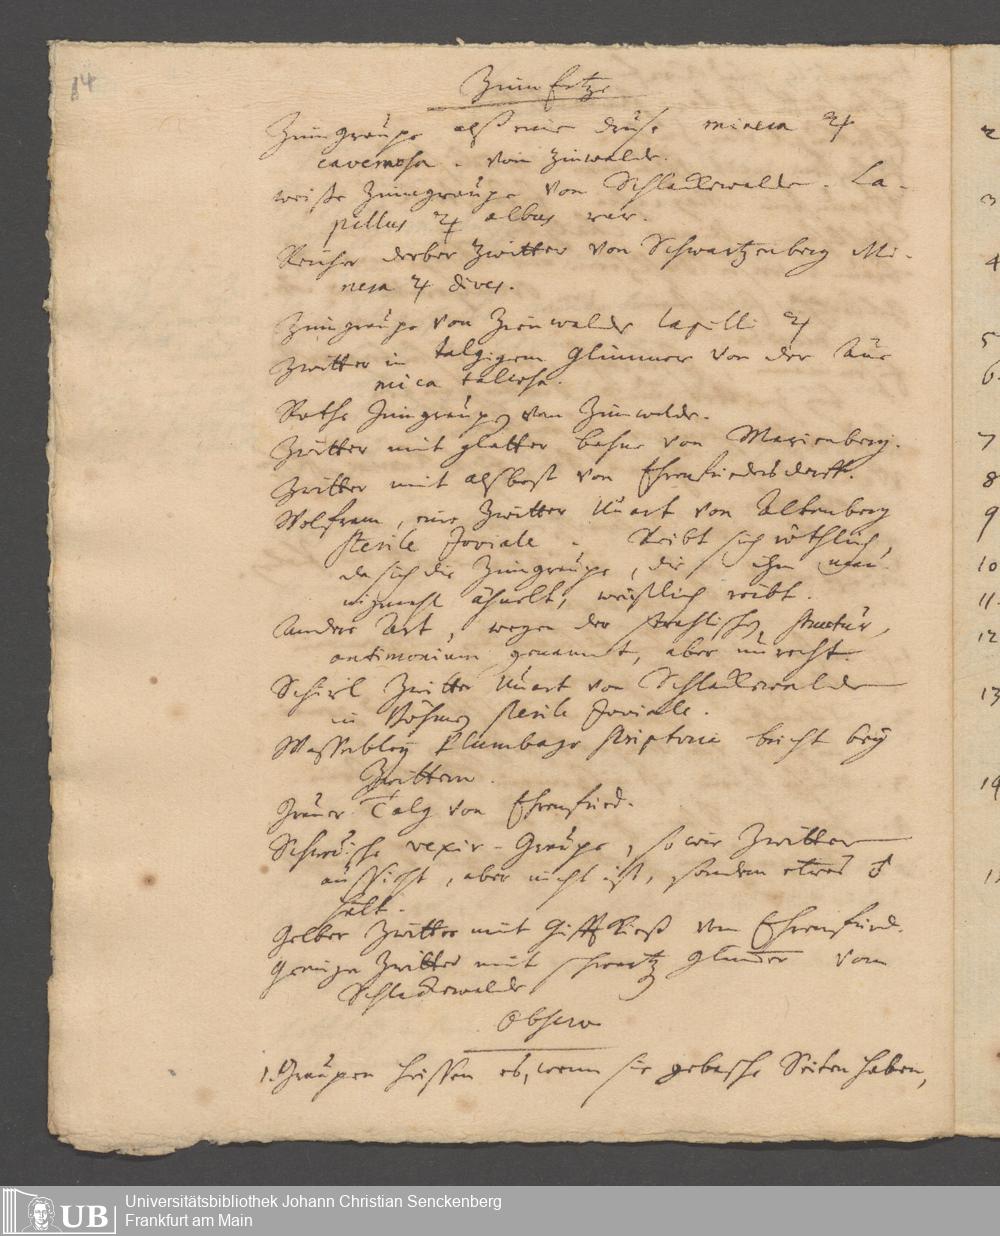 14
Zinn Ertze
Zinngraupe alß eine druse minera ♃
cavernosa. von Zinwalde.
weiße Zinngraupe von Schlackewalde. La-
pillus ♃ albus rar.
Reicher derber Zwitter von Schwartzenberg Mi-
nera ♃ dives.
Zinngraupe von Zinnwalde lapilli ♃
Zwitter in talgigem Glimmer von der Aue
mica talcosa.
Rothe Zinngraupen von Zinwalde.
Zwitter mit glatter von Marienberg.
Zwitter mit alsbest von Ehrenfriedersdorff.
Wolfram, eine Zwitter Unart von Altenberg
sterile Joviale. Reibt sich röthlich,
da sich die Zinngraupe, die ihm
ähnelt, weißlich reibt.
Andere Art, wegen der strahlichen structur,
antimonium genannt, aber unrecht.
Schirl Zwitter Unart von Schlackewalde
in Böhmen sterile Joviale.
Wasserbley Plumbago scriptoria bricht bey
Zwittern.
Grauer Talg von Ehrenfried.
vexir-Graupe, so wie Zwitter
aussieht, aber nicht ist, sondern etwas ♂
hält.
Gelber Zwitter mit Gifftkieß von Ehrenfried.
Zwitter mit schwartz Glimmer von
Schlackewalde
Observ
1. Graupen heissen es, wenn sie Seiten haben,
2
3
4
5
6.
7
8
9
10
11.
12
13
14
Universitätsbibliothek Johann Christian Senckenberg
Frankfurt am Main
UB